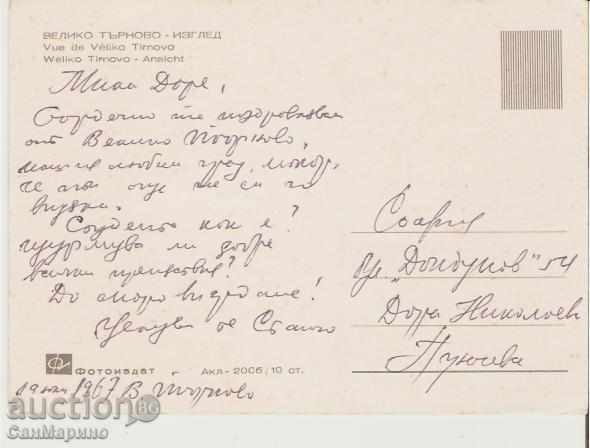 ВЕЛИКО ТЪРНОВО - ИЗГЛЕД
Vue de Véliko Tirnovo
Weliko Tirnovo - Ansicht
Мила Доре,
Сърдечно те поздравявам
от Велико Търново,
нашия любим град, макар,
че ти още не си го
видяла.
Студента как е?
щурмува ли добре
всички препятствия?
До скоро виждане!
Целува те Станка
София
ул. „Дондуков" 54
Дора Николаева
Фотоиздат
Акл - 2006/10 ст.
1967 В. Търново
auction BG
СанМарино